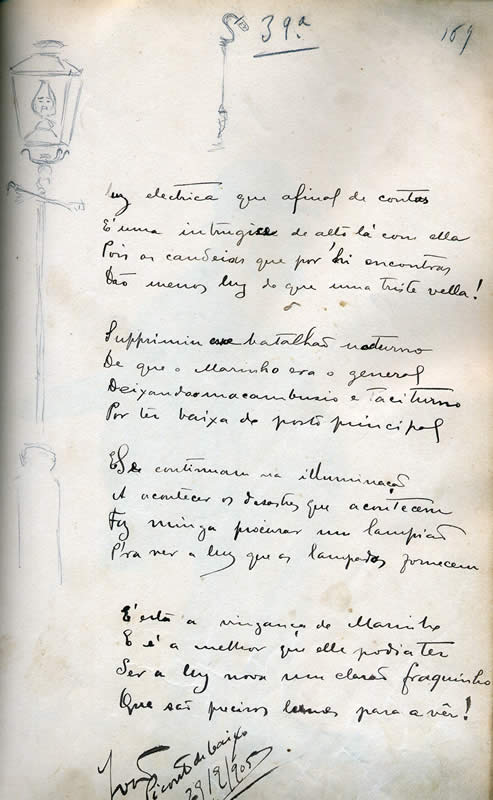 39.ª
169
Luz electrica que afinal de contas
É uma intrugice de alto lá com ella
Pois as candeias que por 'hi encontras
Dão menos luz do que uma triste vella!
Supprimiu esse batalhão nocturno
De que o Marinho era o general
Deixando-o macambusio e taciturno
Por ter baixa de posto principal
E se continuam na illuminação
A acontecer os desastres que acontecem
Faz mingua procurar um lampião
P'ra ver a luz que as lampadas fornecem
E está a vingança do Marinho
E é a melhor que elle podia ter
Ser a luz nova um clarão fraquinho
Que são precisos lumes para a vêr!
29/9/905